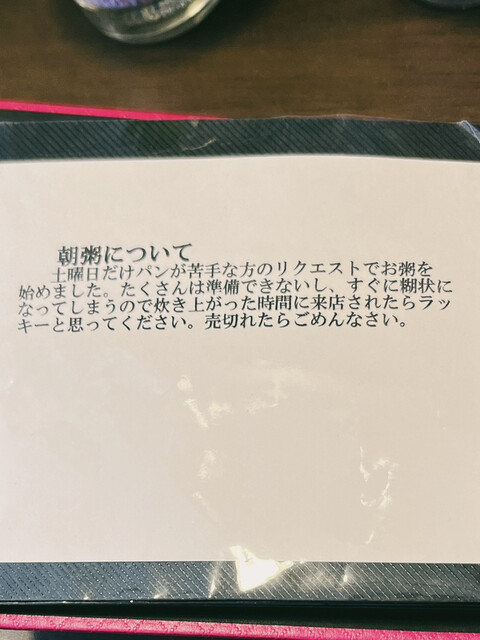 朝粥について
土曜日だけパンが苦手な方のリクエストでお粥を
始めました。たくさんは準備できないし、すぐに糊状に
なってしまうので炊き上がった時間に来店されたらラッ
キーと思ってください。売切れたらごめんなさい。